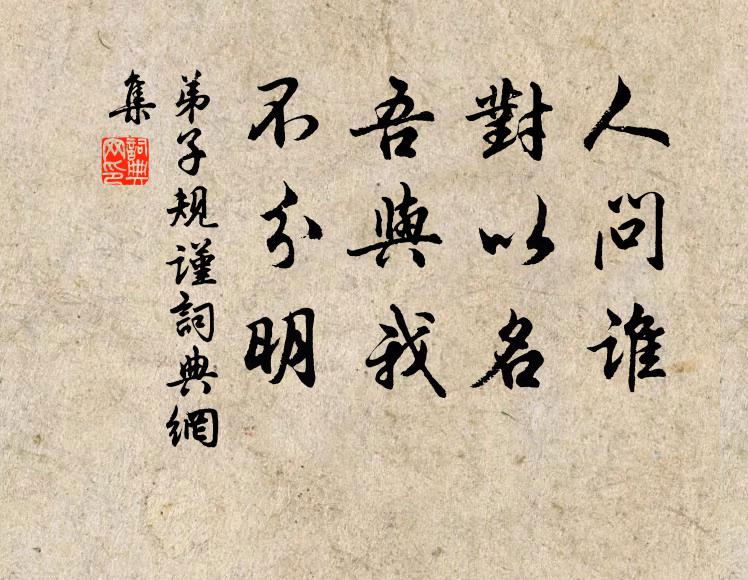 人問誰
對以名
吾與我
不分明
弟子規謹詞典網
集
詞典
网印